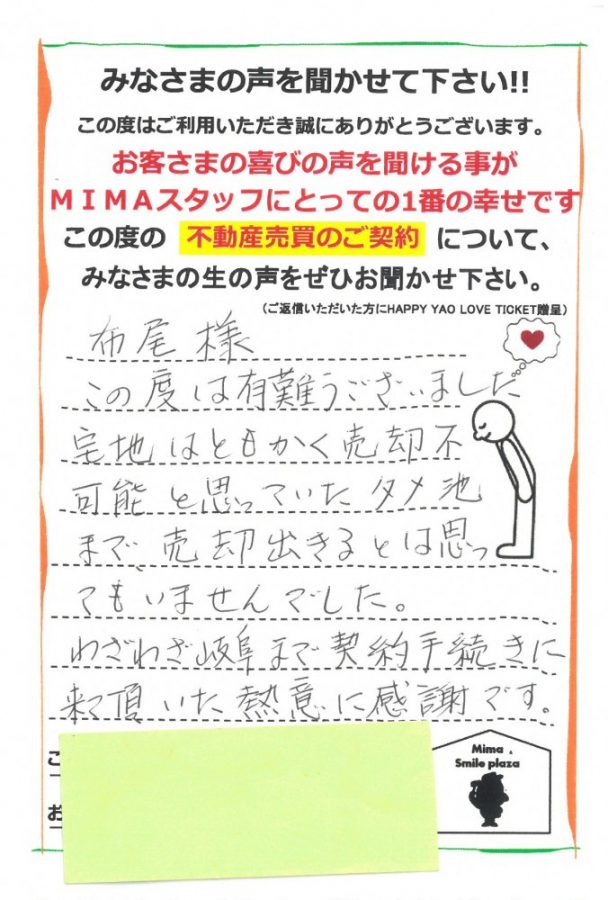 みなさまの声を聞かせて下さい!!
この度はご利用いただき誠にありがとうございます。
お客さまの喜びの声を聞ける事が
MIMAスタッフにとっての1番の幸せです
この度の 不動産売買のご契約 について、
みなさまの生の声をぜひお聞かせ下さい。
(ご返信いただいた方にHAPPY YAO LOVE TICKET贈呈)
布尾様
この度は有難うございました
宅地はともかく売却不
可能と思っていたタメ池
まで、売却出きるとは思っ
てもいませんでした。
わざわざ岐阜まで契約手続きに
来て頂いた熱意に感謝です。
ご
お
Mima
Smile plaza